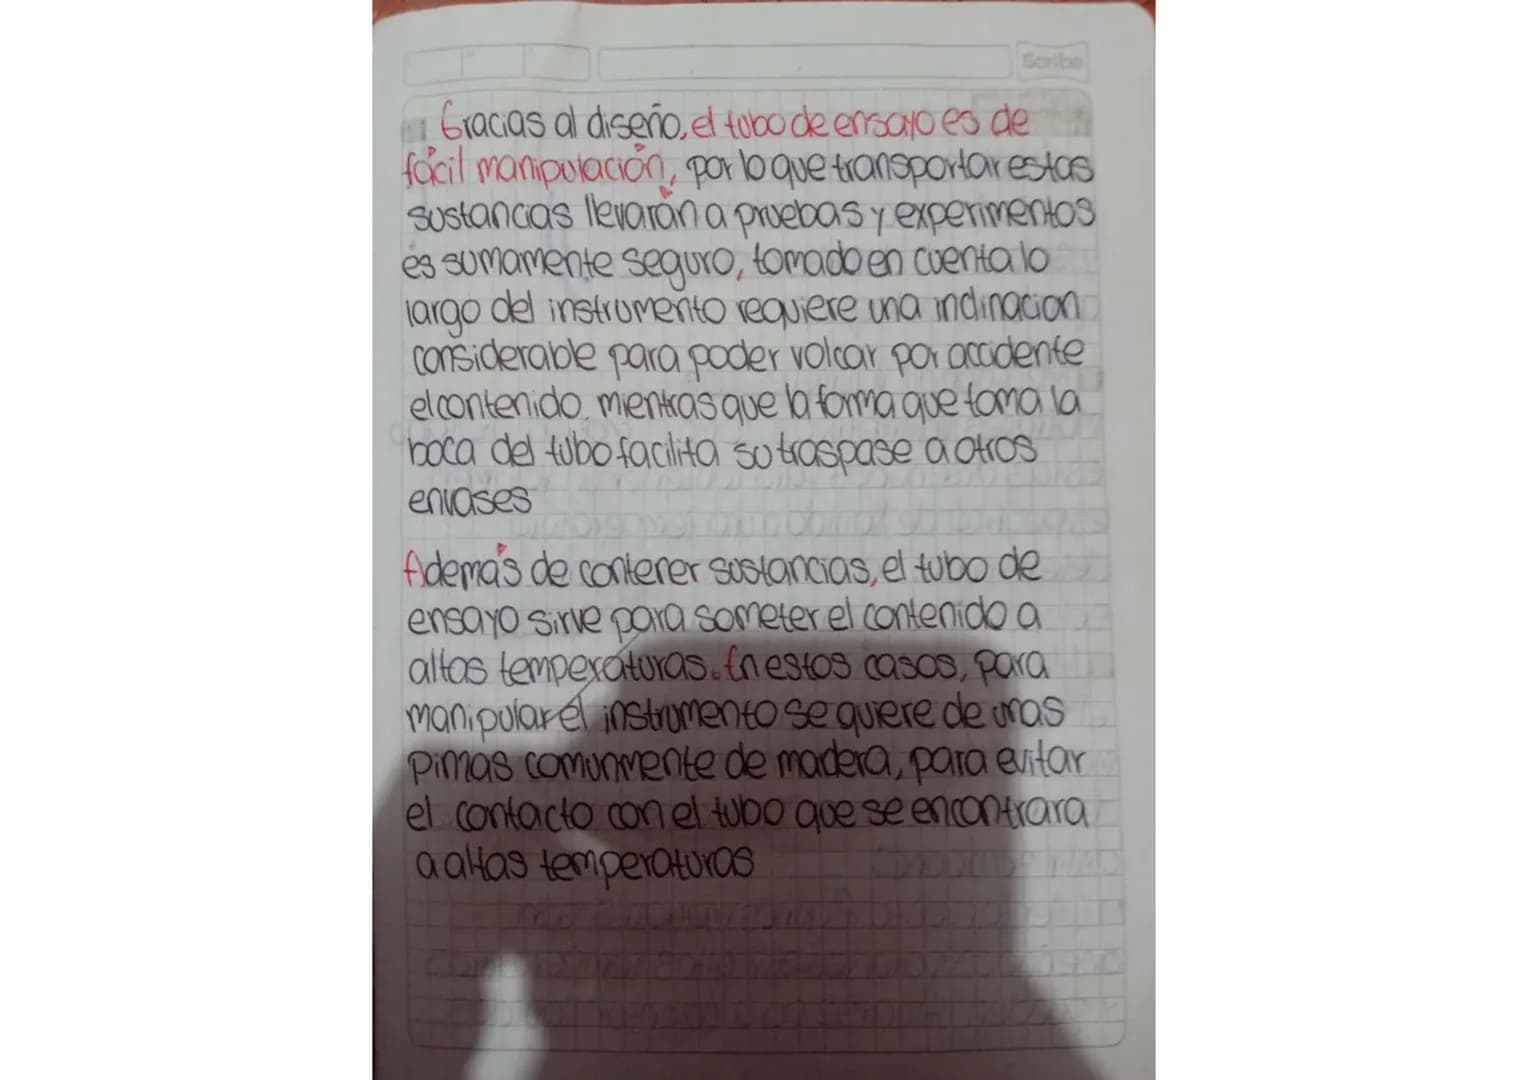 Scribe
Gracias al diseño, el tubo de ensayo es de
fácil manipulación, por lo que transportar estas
sustancias llevarán a pruebas y experimentos
es sumamente seguro, tomado en cuenta lo
largo del instrumento requiere una inclinacion
considerable para poder volcar por accidente
el contenido mientras que la forma que toma la
boca del tubo facilita su traspase a otros
envases
Además de contener sustancias, el tubo de
ensayo sirve para someter el contenido a
altas temperaturas. En estos casos, para
manipular el instrumento se quiere de unas
pimas comunmente de madera, para evitar
el contacto con el tubo que se encontrara
a altas temperaturas